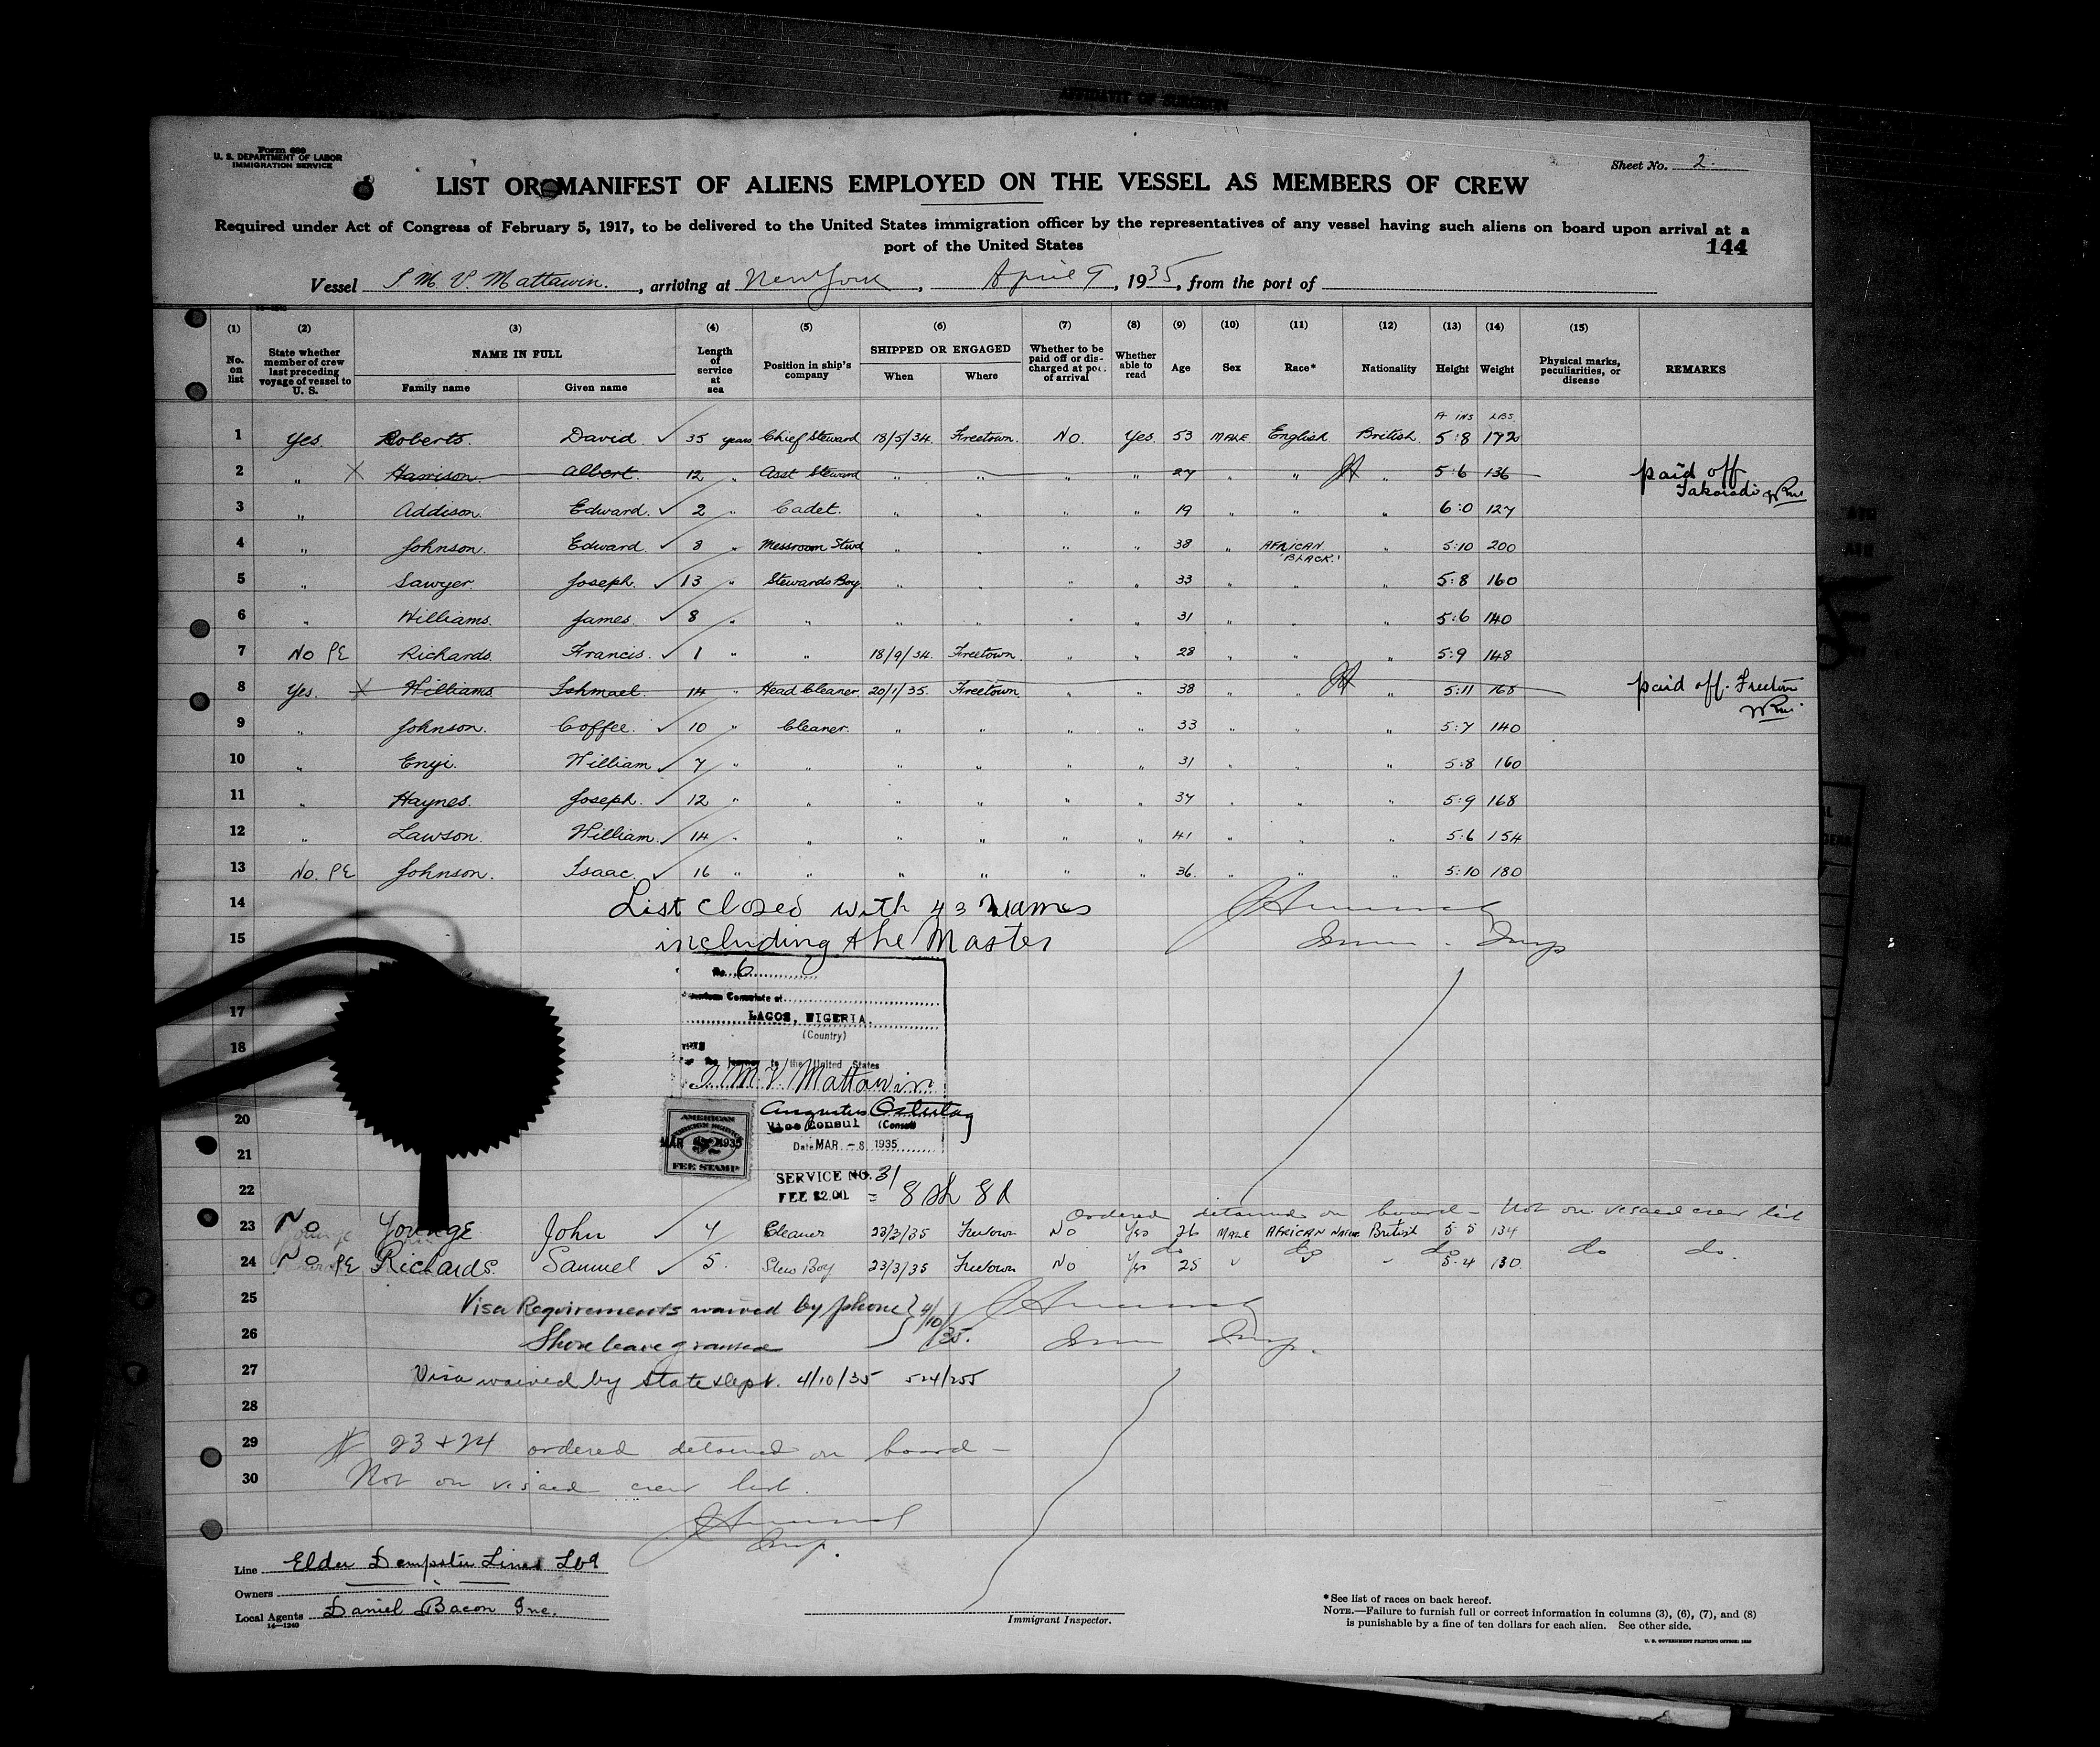 AFFIDAVIT OF SURGEON
Form 680
U. S. DEPARTMENT OF LABOR
IMMIGRATION SERVICE
Sheet No. 2.
LIST OR MANIFEST OF ALIENS EMPLOYED ON THE VESSEL AS MEMBERS OF CREW
Required under Act of Congress of February 5, 1917, to be delivered to the United States immigration officer by the representatives of any vessel having such aliens on board upon arrival at a
port of the United States
144
Vessel M. V. Mattawin., arriving at New York, April 9, 1935, from the port of
(1) (2) (3) (4) (5) (6) (7) (8) (9) (10) (11) (12) (13) (14) (15)
No. on list State whether member of crew last preceding voyage of vessel to U. S. NAME IN FULL Family name Given name Length of service at sea Position in ship's company SHIPPED OR ENGAGED When Where Whether to be paid off or discharged at port of arrival Whether able to read Age Sex Race* Nationality Height Weight Physical marks, peculiarities, or disease REMARKS
Ft INS LBS
1 Yes. Roberts. David. ✓ 35 years Chief Steward 18/5/34. Freetown. No. Yes 53 MALE English British 5:8 172
2 " X Harrison. Albert. 12 " Asst Steward " " " " 27 " " " 5:6 136 paid off
Takoradi
3 " Addison. Edward. ✓ 2 " Cadet. " " " " 19 " " " 6:0 127
4 " Johnson. Edward. ✓ 8 " Messroom Stwd " " " " 38 " AFRICAN " 5:10 200
"BLACK."
5 " Sawyer. Joseph. ✓ 13 " Stewards Boy " " " " 33 " " " 5:8 160
6 " Williams. James. ✓ 8 " " " " " " 31 " " " 5:6 140
7 No PE Richards. Francis. ✓ 1 " " 18/9/34. Freetown. " " 28 " " " 5:9 148
8 Yes. X Williams Ishmael. 14 " Head Cleaner. 20/1/35. Freetown " " 38 " " " 5:11 168 paid off. Freetown
9 " Johnson. Coffee. ✓ 10 " Cleaner. " " " " 33 " " " 5:7 140
10 " Enyi. William ✓ 7 " " " " " " 31 " " " 5:8 160
11 " Haynes. Joseph. ✓ 12 " " " " " " 37 " " " 5:9 168
12 " Lawson. William ✓ 14 " " " " " " 41 " " " 5:6 154
13 No. PE Johnson. Isaac. ✓ 16 " " " " " " 36. " " " 5:10 180
14 List closed with 43 names
15 including the Master
Imm. Insp
No. 6
American Consulate at
17 LAGOS, NIGERIA.
(Country)
18
For the journey to the United States
M. V. Mattawin
20 Augustus Ostertag
Vice Consul (Consul)
AMERICAN
FOREIGN SERVICE
MAR $2 1935
FEE STAMP
Date MAR. - 8 1935
21
SERVICE NO. 31
22 FEE $2.00 = 8 sh 8d
Ordered detained on board - Not on visaed crew list
23 No Younge John ✓ 4 Cleaner 23/3/35 Freetown No Yes 26 MALE AFRICAN British 5 5 134
do do do do do.
24 No PE Richards. Samuel ✓ 5. Stew Boy 23/3/35 Freetown No Yes 25 " " 5:4 130
25 Visa Requirements waived by phone } 4/10/35.
26 Shore leave granted
Imm Insp.
27 Visa waived by State Dept. 4/10/35 524/255
28
29 # 23 + 24 ordered detained on board -
30 Not on visaed crew list.
Insp.
Line Elder Dempster Lines Ltd
Owners
Local Agents Daniel Bacon Inc.
14—1240
Immigrant Inspector.
*See list of races on back hereof.
NOTE.—Failure to furnish full or correct information in columns (3), (6), (7), and (8)
is punishable by a fine of ten dollars for each alien. See other side.